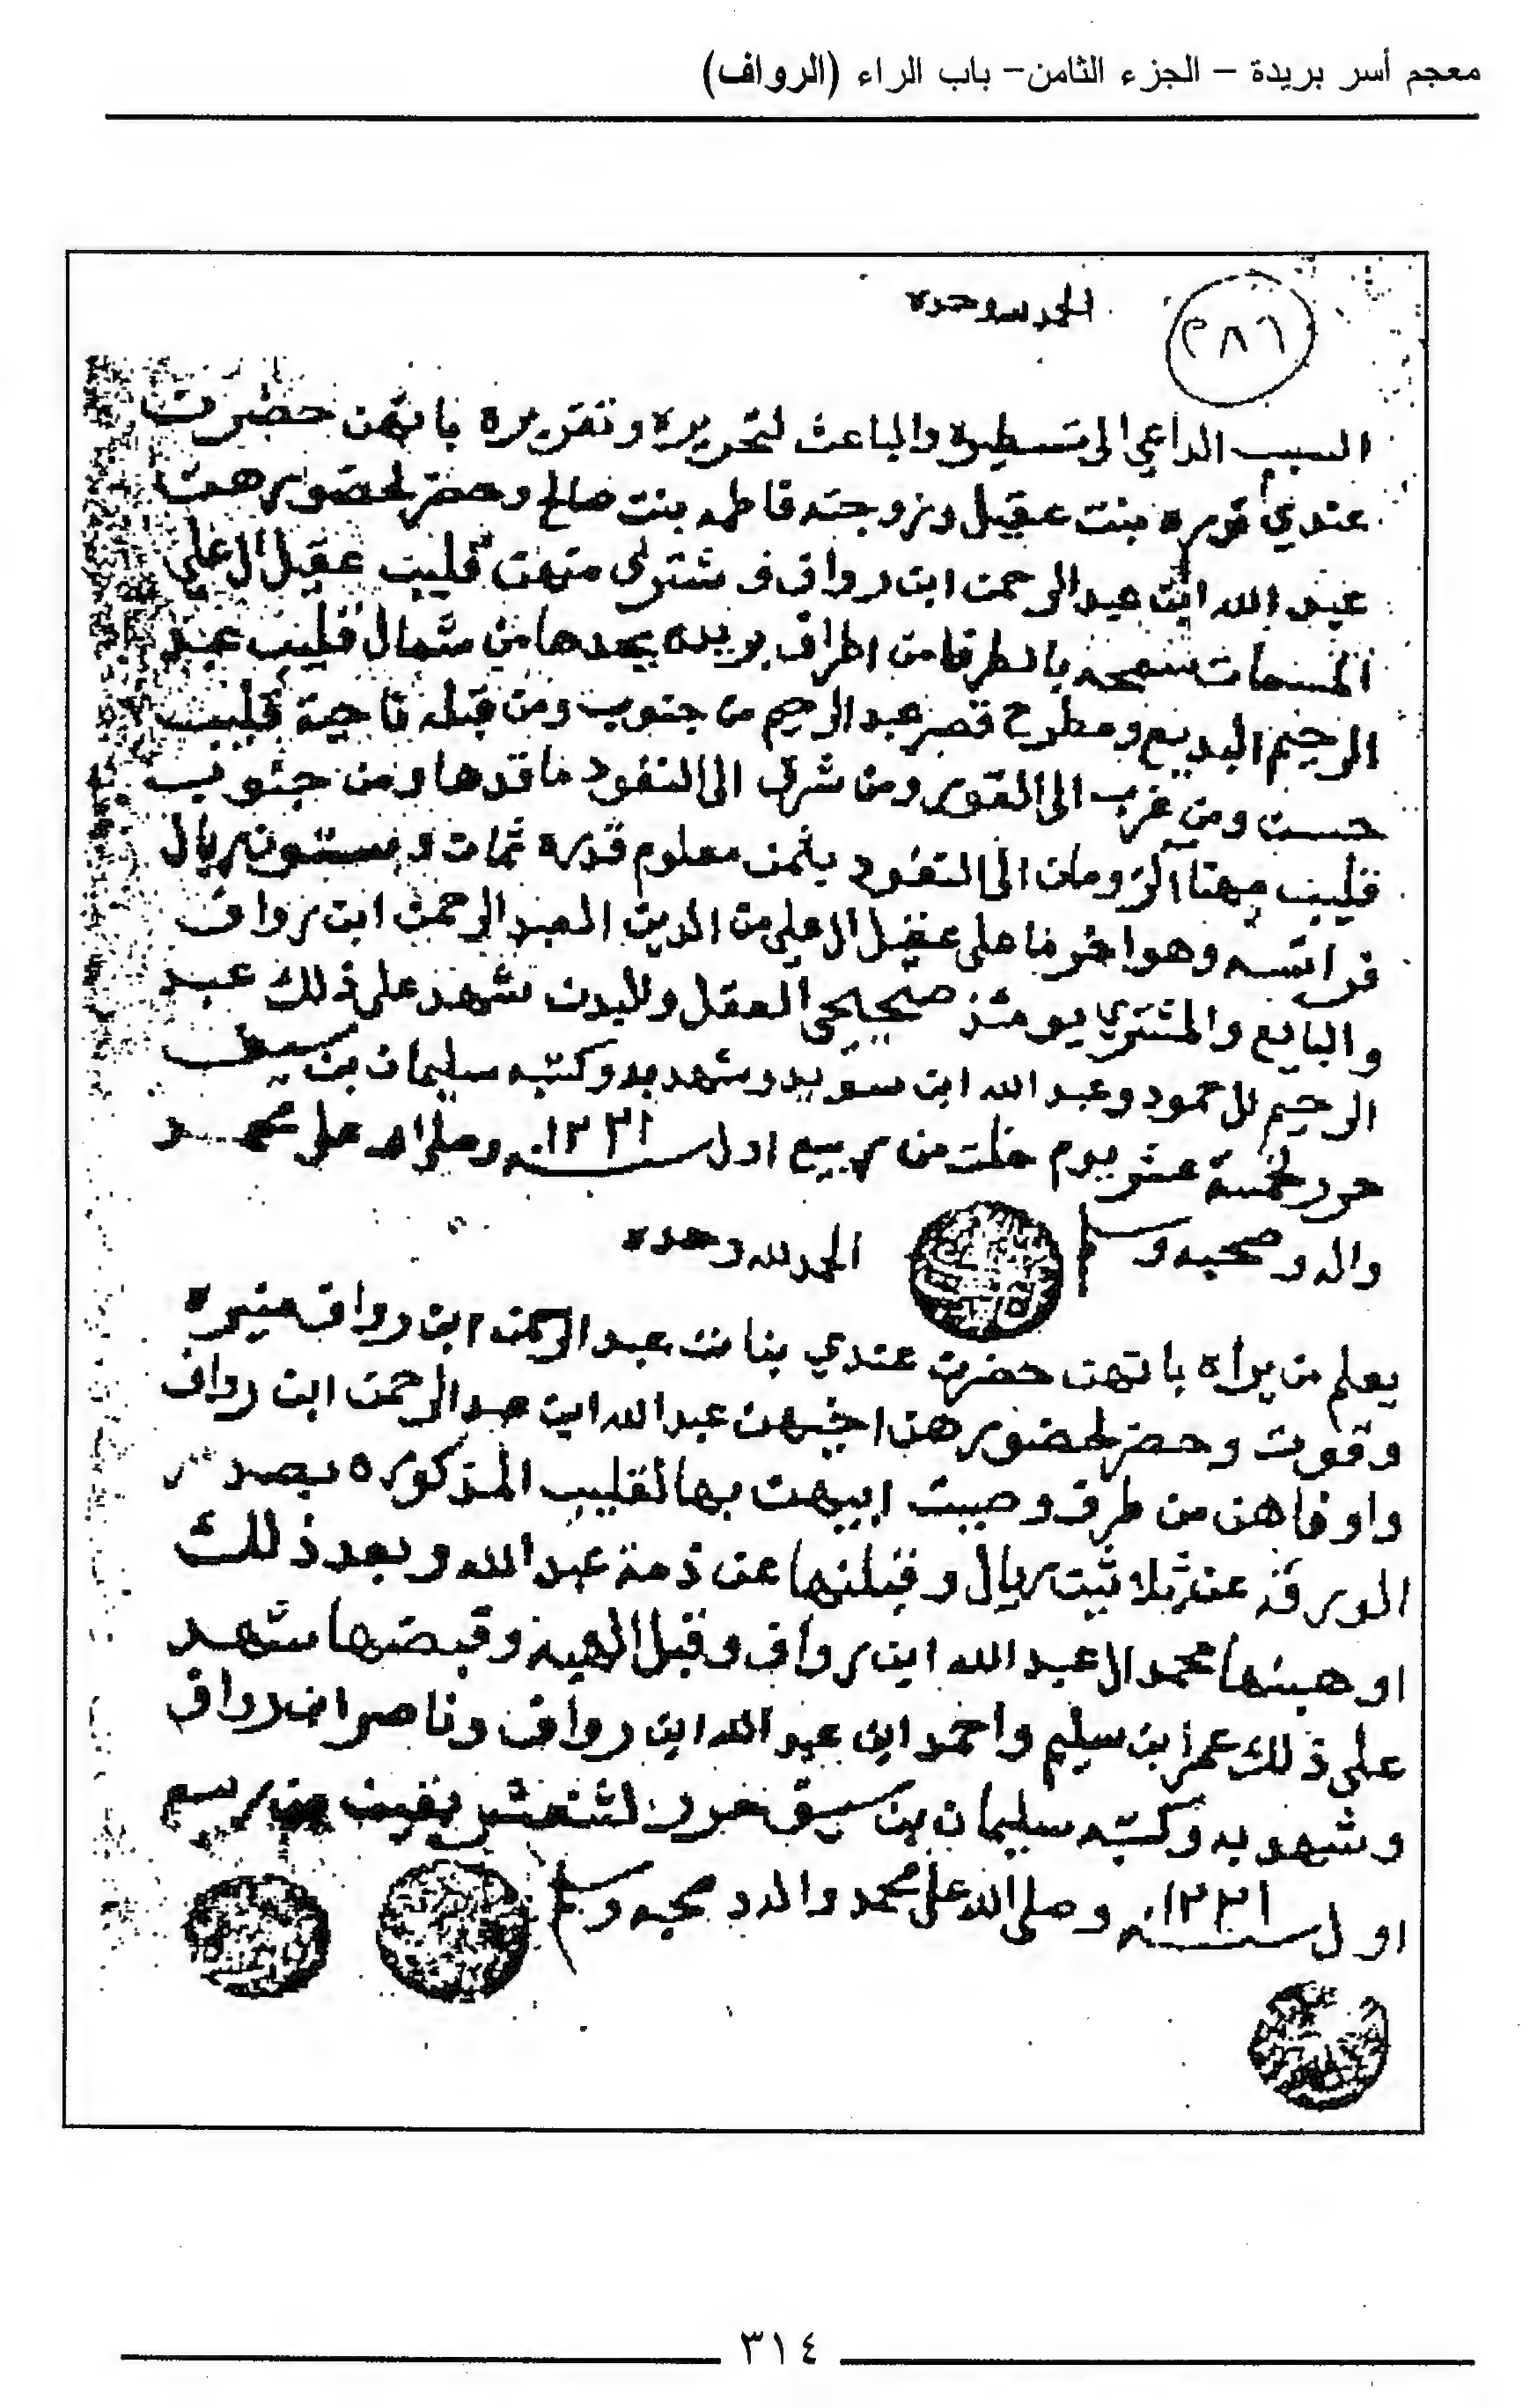 معجم أسر بريدة – الجزء الثامن– باب الراء (الرواف)
٢٨٦
الحمد لله وحده
السبب الداعي الى تسطيره والباعث لتحريره وتقريره بانهن حضرت
عندي قوره بنت عقيل وزوجته فاطمه بنت صالح وحضر لحضورهن
عبد الله ابن عبد الرحمن ابن رواف فشترى منهن قليب عقيل ال علي
المسمات سمحه بالطرفا من اطراف بريده يحدها من شمال قليب عبد
الرحيم البديع ومطرح قصر عبد الرحيم من جنوب ومن قبله ناحية قليب
حسن ومن غرب الى القور ومن شرق الى النفود ما قدها ومن جنوب
قليب مهنا الزومان الى النفود بثمن معلوم قدره ثمان وستون ريال
فرانسه وهو اخر ما على عقيل ال علي من الدين العبد الرحمن ابن رواف
والبايع والمشتري يومئذ صحيحي العقل والبدن شهد على ذلك عبد
الرحيم الحمود وعبد الله ابن سويد وشهد به وكتبه سليمان بن سيف
حرر لخمسة عشر يوم خلت من ربيع اول سنة ١٢٣١ وصلى الله على محمد
واله وصحبه وسلم
الحمد لله وحده
يعلم من يراه بانهن حضرن عندي بنات عبد الرحمن ابن رواف منيره
وقوت وحضر لحضورهن اخيهن عبد الله ابن عبد الرحمن ابن رواف
واوفاهن من طرف وصيت ابيهن بها القليب المذكوره بصدر
الورقه عن ثلاثين ريال وقبلنها عن ذمة عبد الله وبعد ذلك
اوهبنها محمد ال عبد الله ابن رواف وقبل الهبه وقبضها شهد
على ذلك عمر ابن سليم واحمد ابن عبد الله ابن رواف وناصر ابن رواف
وشهد به وكتبه سليمان بن سيف حرر لثنعشر بقين من ربيع
اول سنة ١٢٣١ وصلى الله على محمد واله وصحبه وسلم
٣١٤